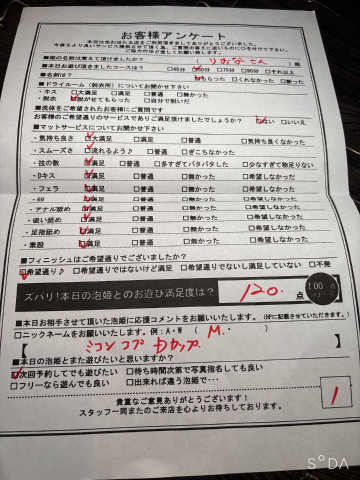 お客様アンケート
本日はあわほたる店をご利用頂きましてありがとうございました。
今後もより良いサービス提供させて頂く為、ご質問の答えに近いものに○を付けて下さい。
ご協力のほど宜しくお願い致します。
■姫の名前は覚えて頂けましたか？ りおなさん 姫
■本日お遊び頂きましたコースは？ □45分 □60分 □75分 □90分 □それ以上
■名刺は？ □もらった □くれなかった □断った
■ドライルーム（脱衣所）についてお聞かせ下さい
・キス □大満足 □満足 □普通 □無かった
・脱衣 □脱がせてもらった □自分で脱いだ
■洗体をご希望されたお客様にご質問です
お客様のご希望通りのサービスでありご満足頂けましたでしょうか？ □はい □いいえ
■マットサービスについてお聞かせ下さい
・気持ち良さ □大満足 □満足 □普通 □気持ち良くなかった
・スムーズさ □流れるよう♪ □普通 □ぎこちなかった
・技の数 □満足 □普通 □多すぎてバタバタした □少なすぎて物足りない
・Dキス □満足 □普通 □無かった □希望しなかった
・フェラ □満足 □普通 □無かった □希望しなかった
・69 □満足 □普通 □無かった □希望しなかった
・アナル舐め □満足 □普通 □無かった □希望しなかった
・吸い舐め □満足 □普通 □無かった □希望しなかった
・足指舐め □満足 □普通 □無かった □希望しなかった
・素股 □満足 □普通 □無かった □希望しなかった
■フィニッシュはご希望通りでございましたか？
□希望通り♪ □希望通りではないけど満足 □希望通りでないし満足していない □不発
ズバリ！本日の泡姫とのお遊び満足度は？ 120. 点
■本日お相手させて頂いた泡姫に応援コメントをお願いいたします。（HPに記載させていただきます。）
□ニックネームをお願いいたします。例：A・W （ M.・ ）
■本日の泡姫とまた遊びたいと思いますか？
□次回予約してでも遊びたい □待ち時間次第で写真指名しても良い
□フリーなら遊んでも良い □出来れば違う泡姫で・・・
貴重なご意見ありがとうございます！
スタッフ一同またのご来店を心よりお待ちしております。
1